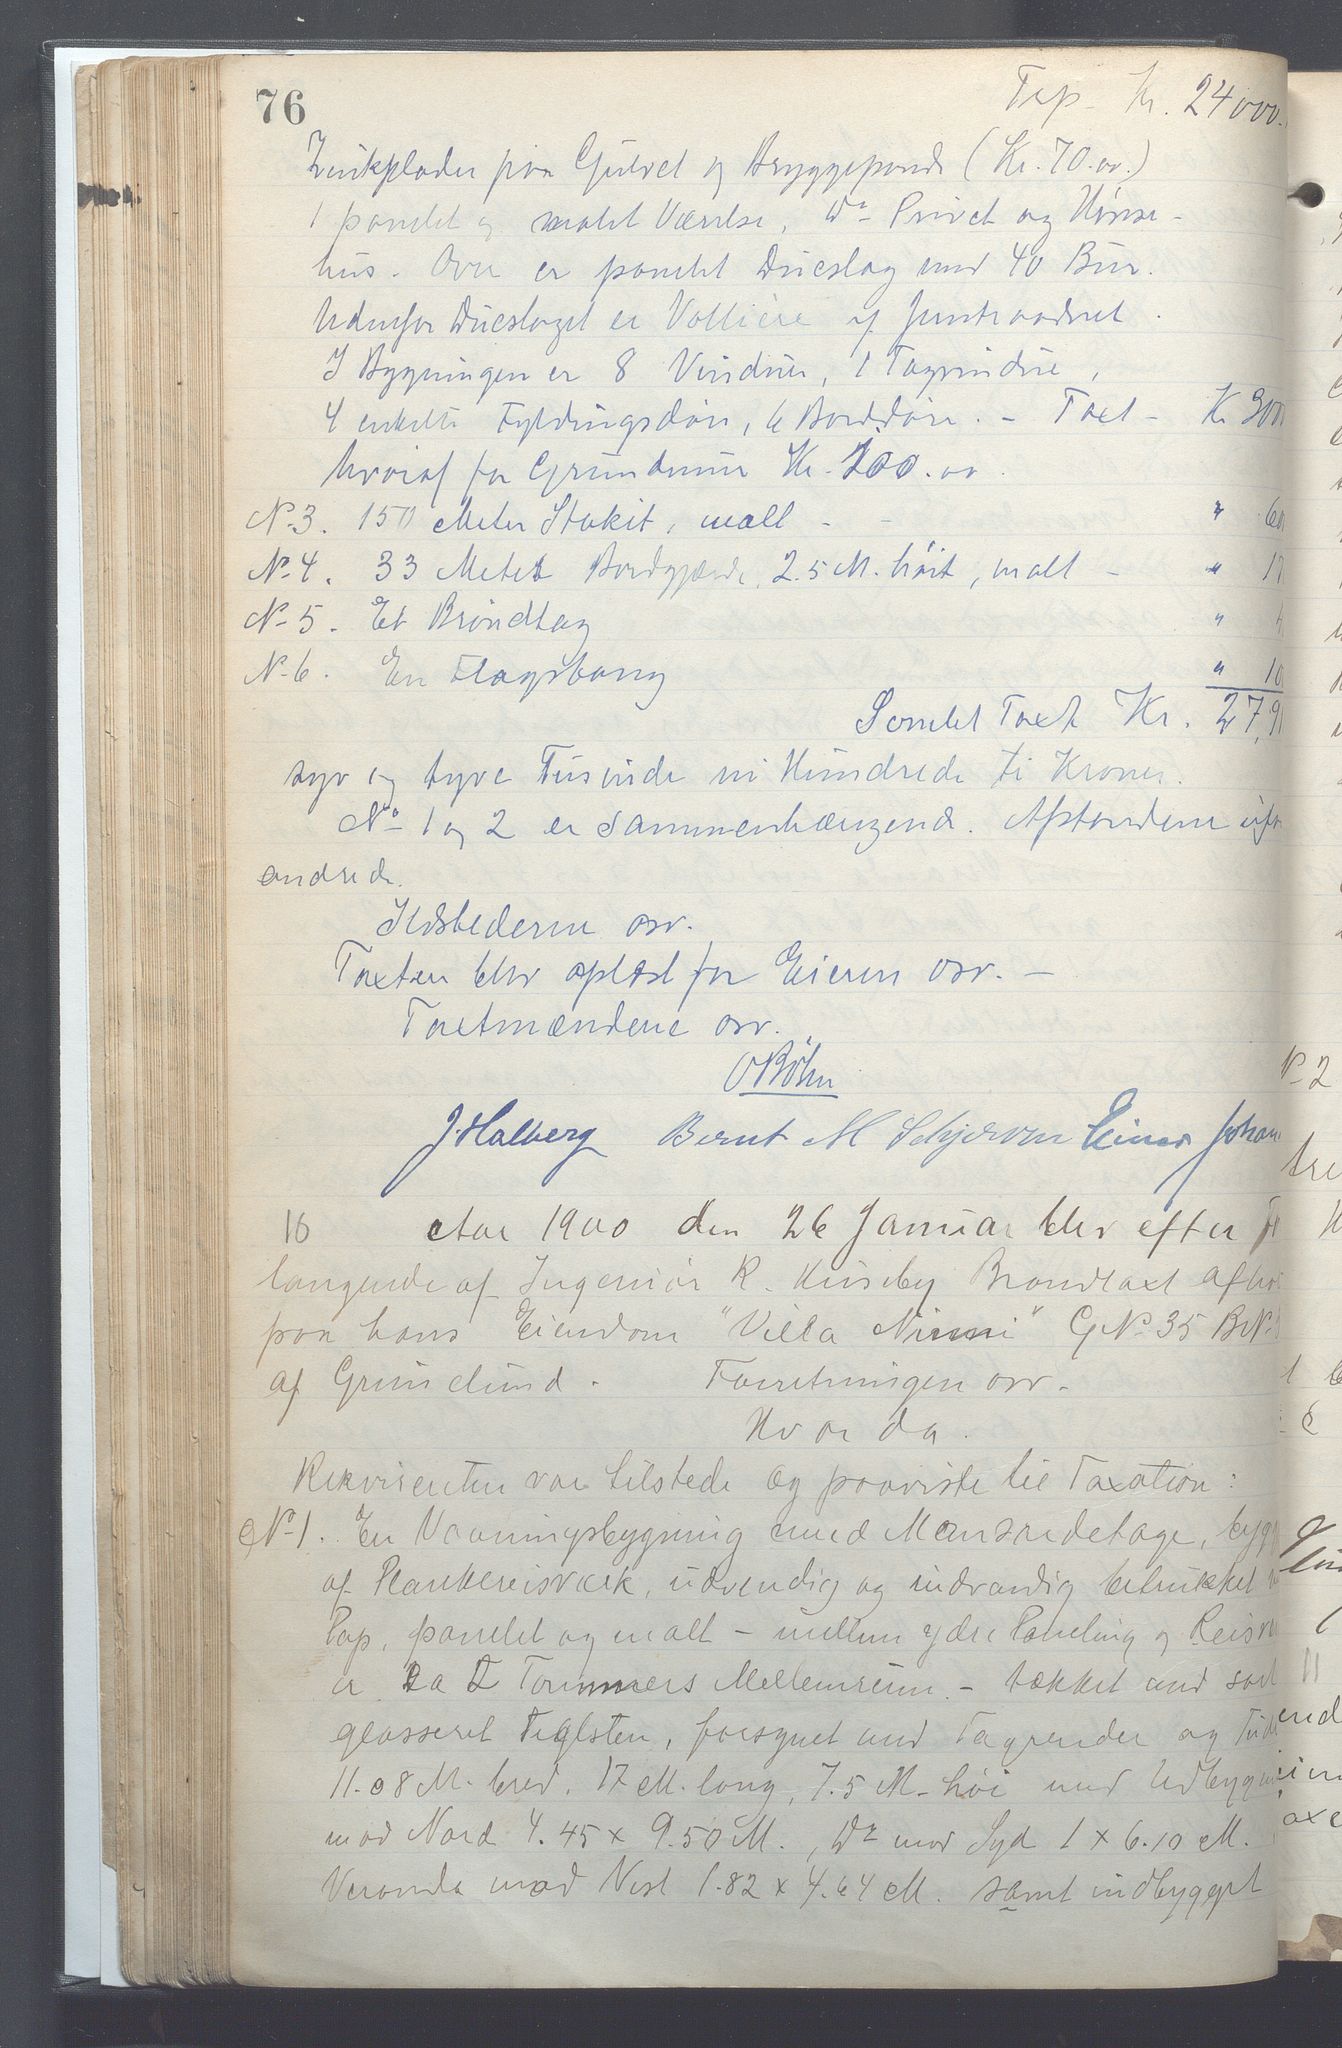 76
Trp. Kr. 24000.
Zinkplader paa Gulvet og Bryggepande (Kr. 70.oo.)
1 panelet og malet Værelse, Do Privet og Hønse-
hus. Over er panelet Dueslag med 40 Bur.
Udenfor Dueslaget er Volliere af Jerntraadnet.
I Bygningen er 8 Vinduer, 1 Tagvindue,
4 enkelte Fyldingsdøre, 6 Borddøre. - Taxt - Kr 300
hvoraf for Grundmur Kr. 200.oo
No 3. 150 Meter Stakit, malt - - " 60
No 4. 33 Meter Bordgjærde, 2.5 M. høit, malt - " 17
No 5. Et Brøndtag " 4
No 6. En Flagstang " 10
Samlet Taxt Kr. 27,91
syv og tyve Tusinde ni Hundrede ti Kroner.
No 1 og 2 er sammenhængende. Afstandene ufor
andrede.
Ildstederne osv.
Taxten blev oplæst for Eieren osv. -
Taxtmændene osv.
O Bøhm
J. Halberg Bernt M Schjerven Einar Johan
16 Aar 1900 den 26 Januar blev efter F
langende af Ingeniør R. Huseby Brandtaxt afho
paa hans Eiendom "Villa Ninni" GNo 35 BNo
af Grimelund. Forretningen osv.
Hvor da.
Rekvirenten var tilstede og paaviste til Taxation:
No 1. En Vaaningsbygning med Mansardetage, bygg
af Plankereisværk, udvendig og indvendig betrukket
Pap, panelet og malt - mellem ydre Paneling og Reisv
er 2 a Tommers Mellemrum - tækket med sort
glasseret Teglsten, forsynet med Tagrender og
11.08 M. bred, 17 M. lang, 7.5 M. høi med Udbygn
mod Nord 4.45 x 9.50 M., Do mod Syd 1 x 6.10 M.
Veranda mod Vest 1.82 x 4.64 M. samt indbygget